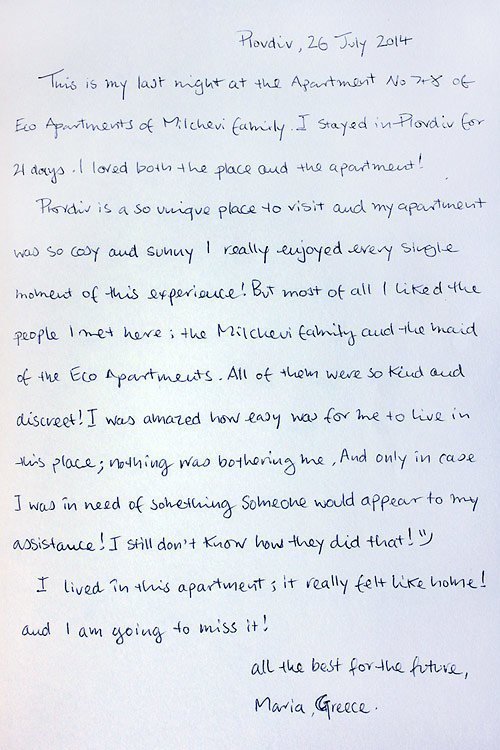 Plovdiv, 26 July 2014
This is my last night at the Apartment No 7+8 of
Eco Apartments of Milchevi family. I stayed in Plovdiv for
21 days. I loved both the place and the apartment!
Plovdiv is a so unique place to visit and my apartment
was so cosy and sunny I really enjoyed every single
moment of this experience! But most of all I liked the
people I met here: the Milchevi family and the maid
of the Eco Apartments. All of them were so kind and
discreet! I was amazed how easy was for me to live in
this place; nothing was bothering me. And only in case
I was in need of something someone would appear to my
assistance! I still don't know how they did that! :)
I lived in this apartment; it really felt like home!
and I am going to miss it!
all the best for the future,
Maria, Greece.